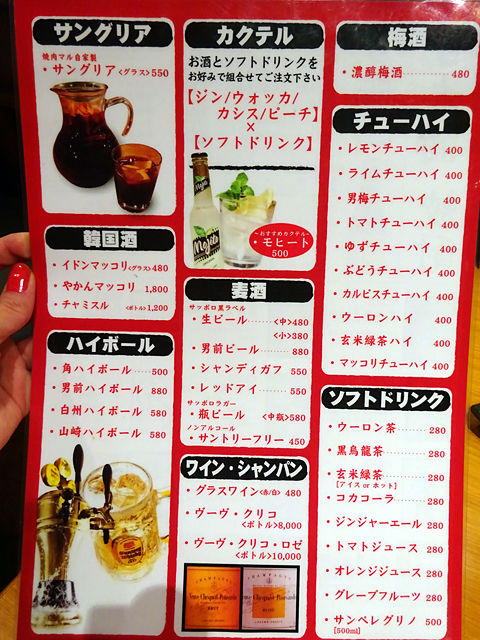 サングリア
焼肉マル自家製
・サングリア<グラス>550
韓国酒
・イドンマッコリ<グラス>480
・やかんマッコリ 1,800
・チャミスル <ボトル>1,200
ハイボール
・角ハイボール……500
・男前ハイボール 880
・白州ハイボール 580
・山崎ハイボール 580
カクテル
お酒とソフトドリンクを
お好みで組合せてご注文下さい
【ジン/ウォッカ/
カシス/ピーチ】
×
【ソフトドリンク】
Mojito
~おすすめカクテル~
・モヒート
500
麦酒
サッポロ黒ラベル
・生ビール……<中>480
<小>380
・男前ビール……880
・シャンディガフ 550
・レッドアイ……550
サッポロラガー
・瓶ビール <中瓶>580
ノンアルコール
・サントリーフリー 450
ワイン・シャンパン
・グラスワイン<赤/白> 480
・ヴーヴ・クリコ
<ボトル>8,000
・ヴーヴ・クリコ・ロゼ
<ボトル>10,000
CHAMPAGNE
Veuve Clicquot Ponsardin
BRUT
CHAMPAGNE
Veuve Clicquot Ponsardin
ROSÉ
梅酒
・濃醇梅酒……480
チューハイ
・レモンチューハイ 400
・ライムチューハイ 400
・男梅チューハイ 400
・トマトチューハイ 400
・ゆずチューハイ 400
・ぶどうチューハイ 400
・カルピスチューハイ 400
・ウーロンハイ 400
・玄米緑茶ハイ 400
・マッコリチューハイ 400
ソフトドリンク
・ウーロン茶……280
・黒烏龍茶……280
・玄米緑茶……280
[アイス or ホット]
・コカコーラ……280
・ジンジャーエール 280
・トマトジュース 280
・オレンジジュース 280
・グレープフルーツ 280
・サンペレグリノ 500
[500ml]